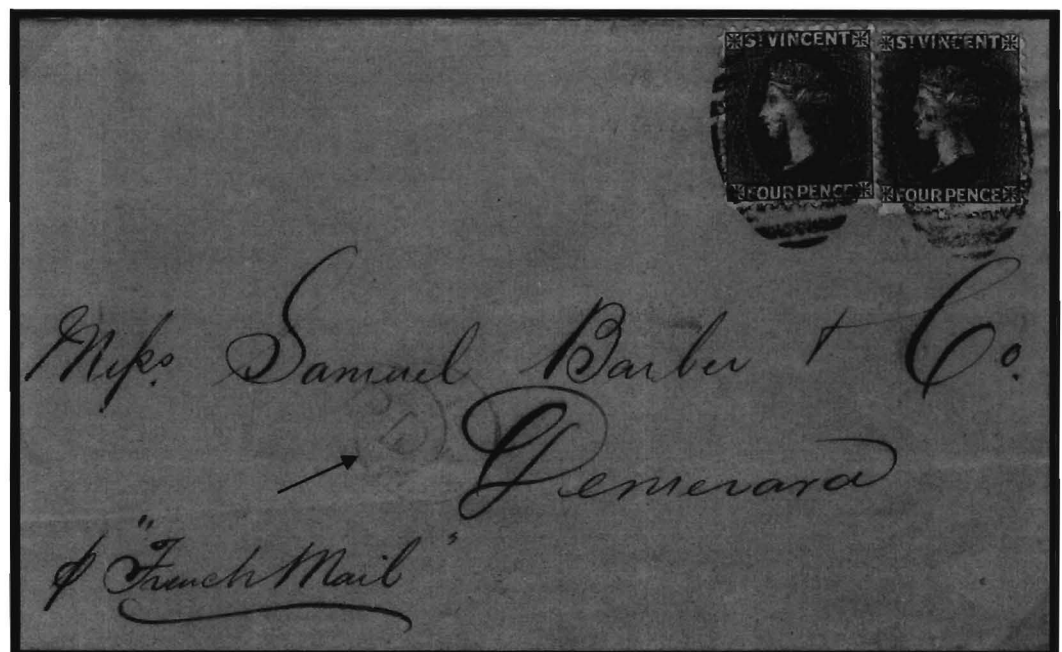 ST VINCENT ST VINCENT
FOUR PENCE FOUR PENCE
Messrs. Samuel Barber & Co.
Demerara
p "French Mail"